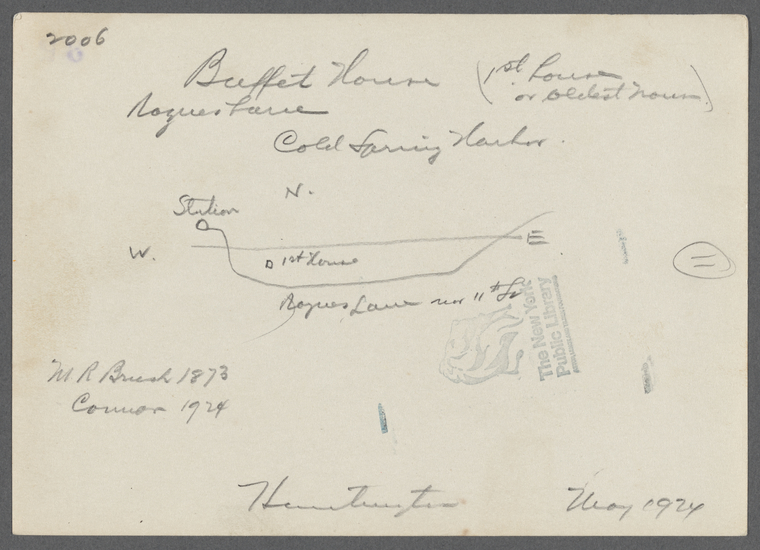 2006
Buffet House
(1st house
or oldest house)
Rogues Lane
Cold Spring Harbor.
N.
Station
W.
1st House
11
Rogues Lane nor 11th St
The New York
Public Library
M. R Brush 1873
Connor 1924
Huntington
May 1924